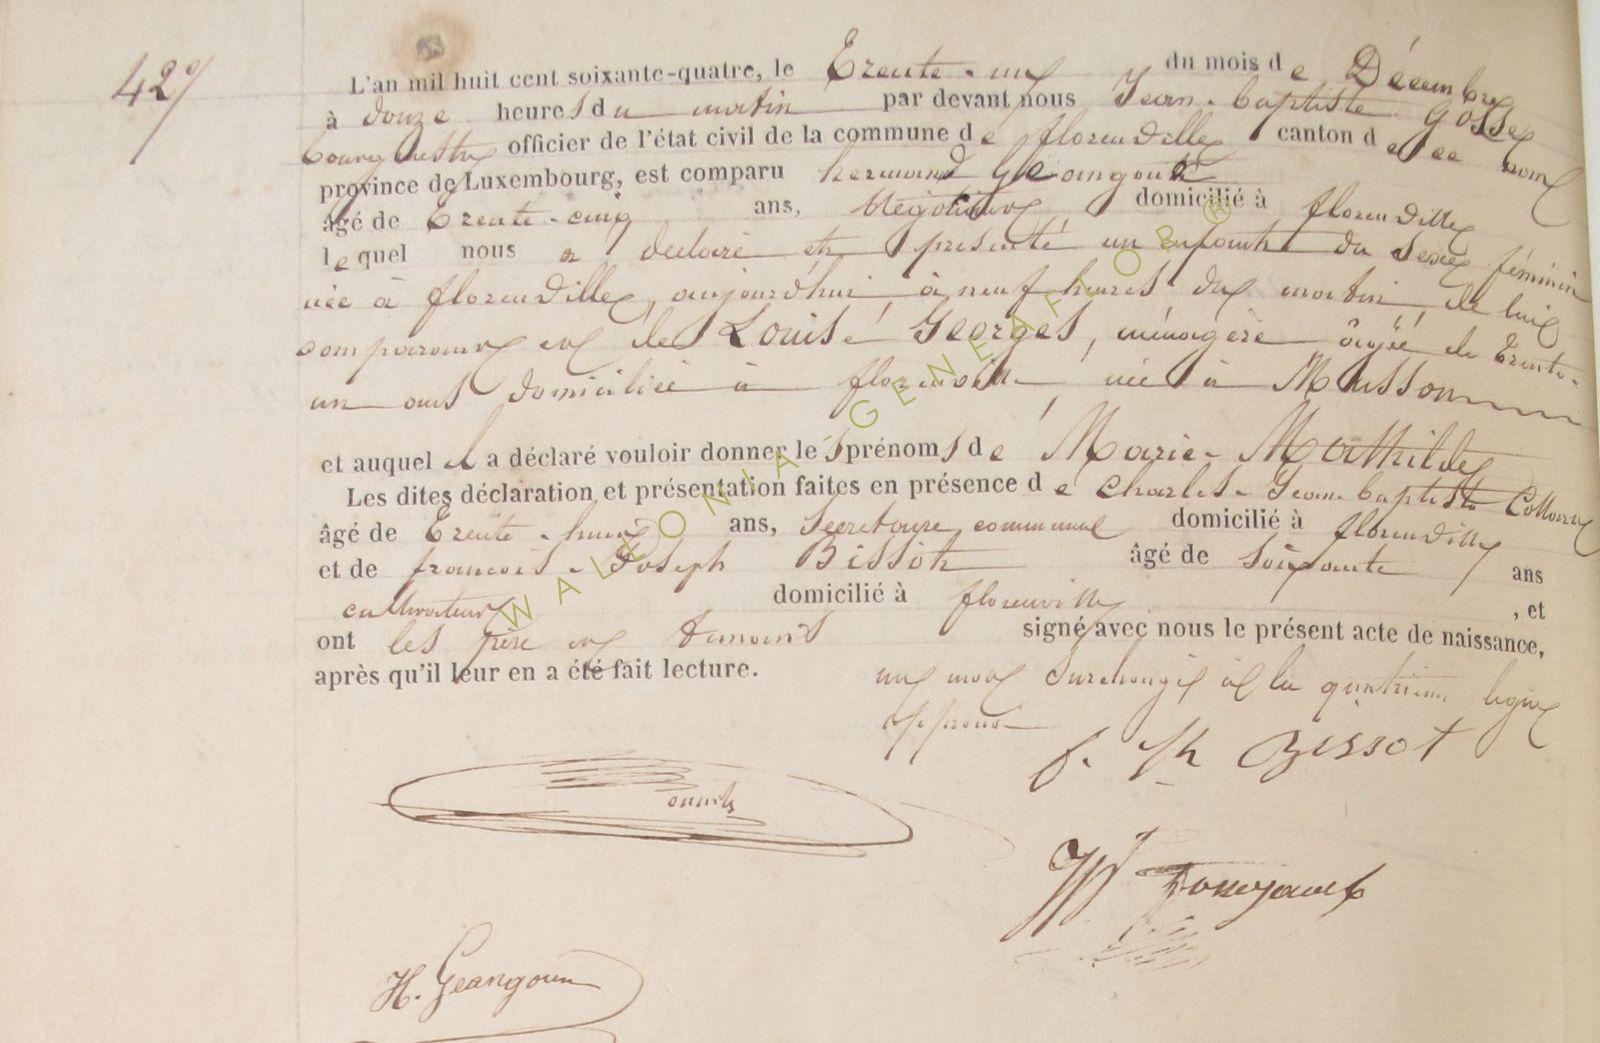 42
L'an mil huit cent soixante-quatre, le Trente-un du mois de Décembre
à douze heures du matin par devant nous Jean-baptiste Gosse
bourgmestre officier de l'état civil de la commune de florenville canton de ce nom
province de Luxembourg, est comparu hermand Geangout
âgé de trente-cinq ans, Négotiant domicilié à florenville
lequel nous a déclaré et presenté un enfant du sexe féminin
née à florenville, aujourd'hui à neuf heures du matin de lui
comparant et de Louise Georges, ménagère âgée de trente-
un ans domiciliée à florenville née à Musson
et auquel il a déclaré vouloir donner les prénoms de Marie-Mathilde
Les dites déclaration et présentation faites en présence de Charles-Jean-baptiste
âgé de Trente-huit ans, Secretaire communal domicilié à florenville
et de francois-Joseph Bissot âgé de Soixante ans
cultivateur domicilié à florenville, et
ont les père et temoins signé avec nous le présent acte de naissance,
après qu'il leur en a été fait lecture. un mot surchargé à la quatrieme ligne
approuvé
f. Jh Bissot
H. Geangout
WALLONIA-GENEAFLOR ®